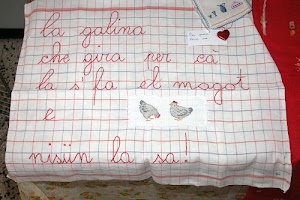 la galina
che gira per cà
la s'fa el magot
e
nisün la sa!